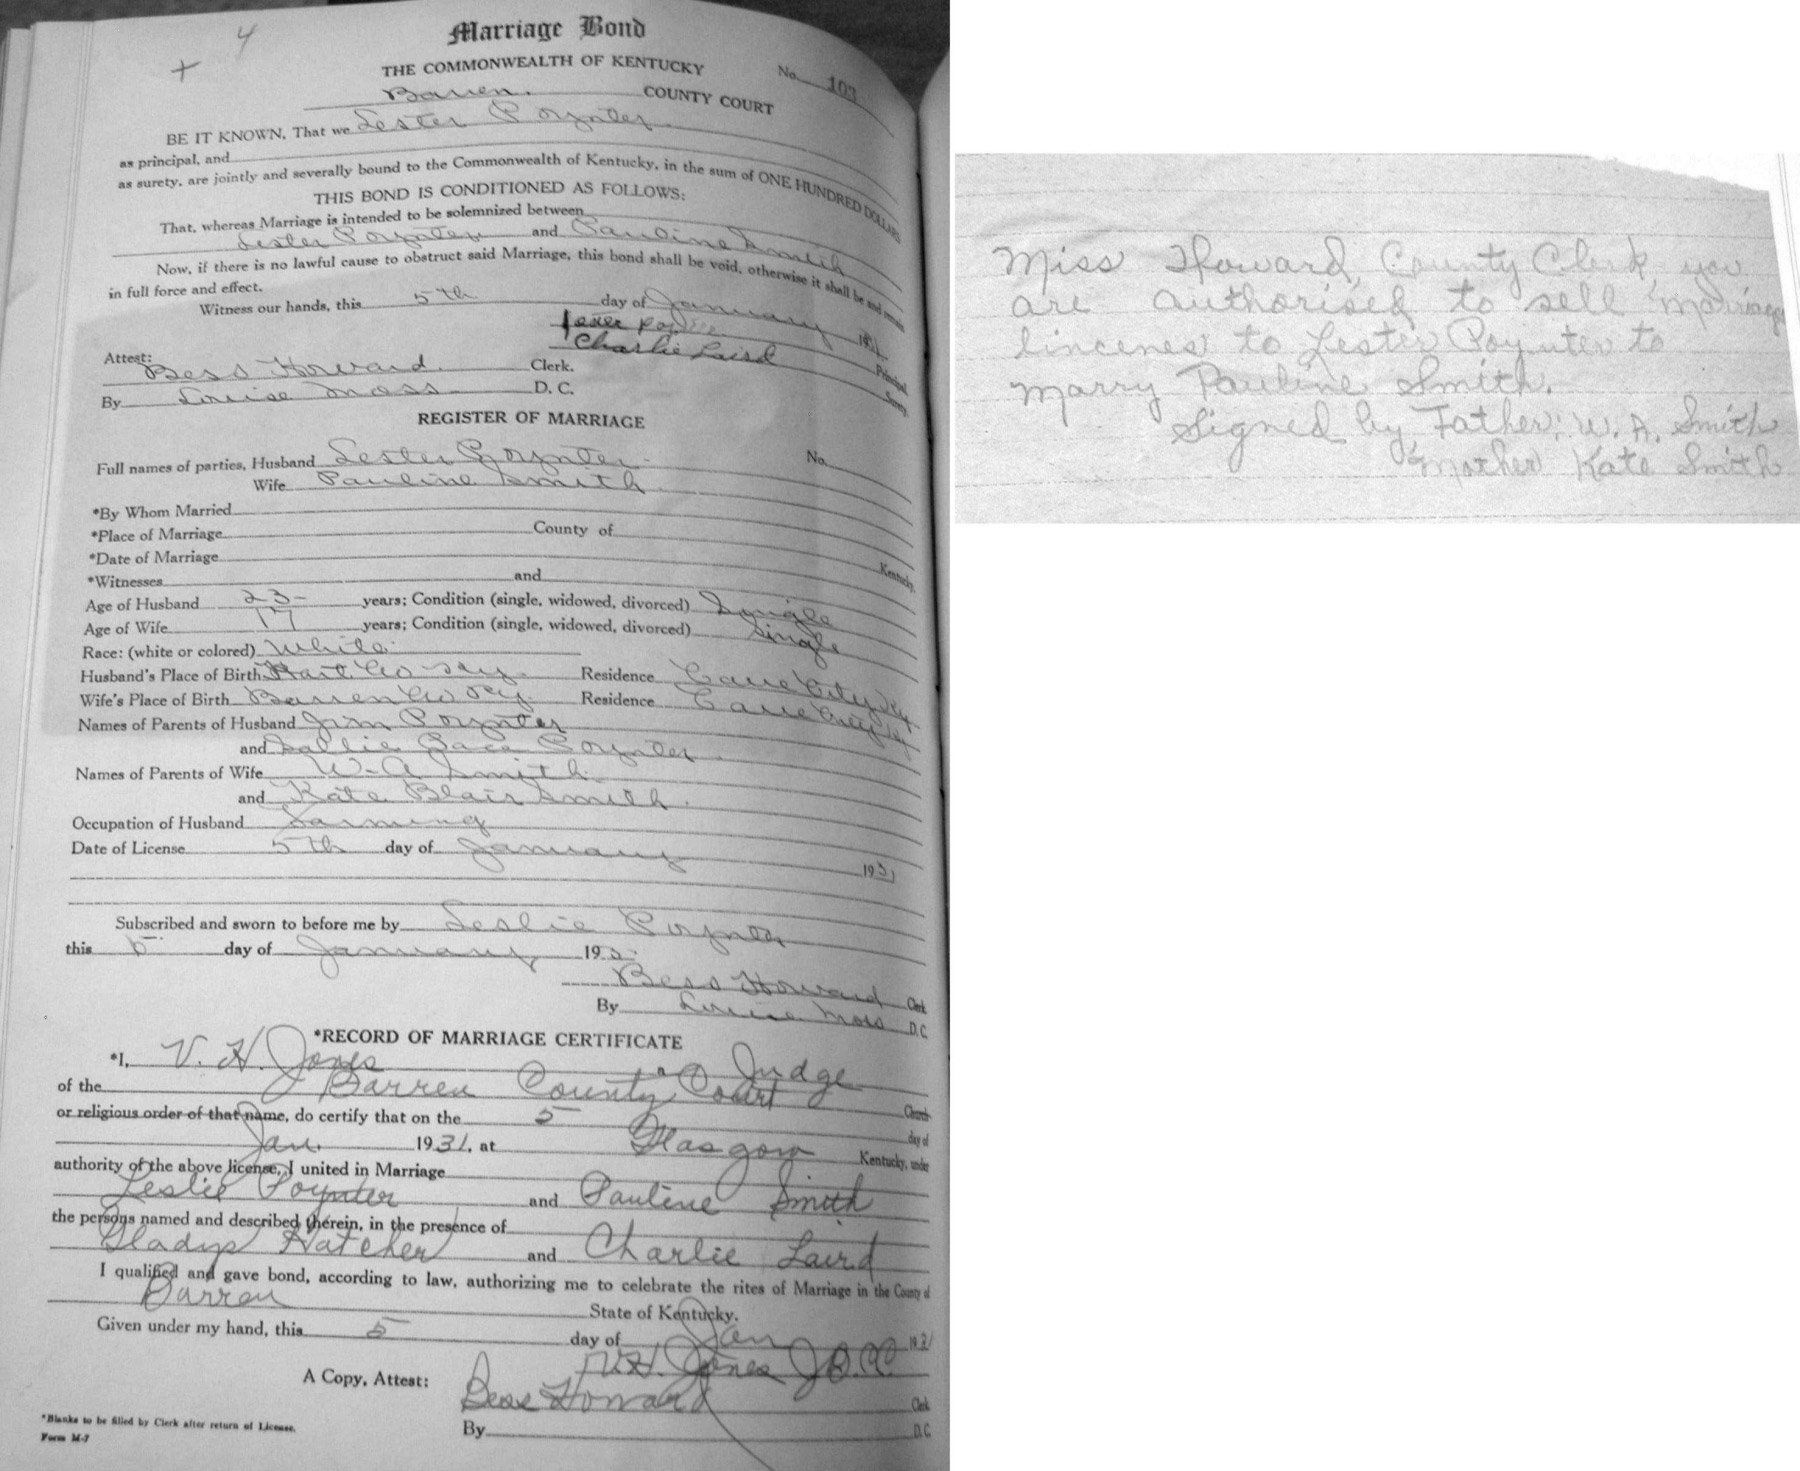 4
+
Marriage Bond
THE COMMONWEALTH OF KENTUCKY No. 103
Barren. COUNTY COURT
BE IT KNOWN, That we Lester Poynter
as principal, and
as surety, are jointly and severally bound to the Commonwealth of Kentucky, in the sum of ONE HUNDRED DOLLARS
THIS BOND IS CONDITIONED AS FOLLOWS:
That, whereas Marriage is intended to be solemnized between
Lester Poynter and Pauline Smith
Now, if there is no lawful cause to obstruct said Marriage, this bond shall be void, otherwise it shall be and remain
in full force and effect.
Witness our hands, this 5th day of January 1931
Lester Poynter Principal
Charlie Laird Surety
Attest:
Bess Howard Clerk.
By Louise Moss D. C.
REGISTER OF MARRIAGE
No.
Full names of parties, Husband Lester Poynter
Wife Pauline Smith
*By Whom Married
*Place of Marriage County of Kentucky.
*Date of Marriage
*Witnesses and
Age of Husband 23 years; Condition (single, widowed, divorced) Single
Age of Wife 17 years; Condition (single, widowed, divorced) Single
Race: (white or colored) White
Husband's Place of Birth Hart Co Ky. Residence Cave City Ky
Wife's Place of Birth Barren Co Ky. Residence Cave City Ky
Names of Parents of Husband Jim Poynter
and Sallie Pace Poynter
Names of Parents of Wife W. A Smith
and Kate Blair Smith.
Occupation of Husband Farming
Date of License 5th day of January 1931
Subscribed and sworn to before me by Leslie Poynter
this 5 day of January 193
Bess Howard Clerk
By Louise Moss D. C.
*RECORD OF MARRIAGE CERTIFICATE
*I, V. H. Jones a Judge
of the Barren County Court Church
or religious order of that name, do certify that on the 5 day of
Jan. 1931, at Glasgow Kentucky, under
authority of the above license, I united in Marriage
Leslie Poynter and Pauline Smith
the persons named and described therein, in the presence of
Gladys Hatcher and Charlie Laird
I qualified and gave bond, according to law, authorizing me to celebrate the rites of Marriage in the County of
Barren State of Kentucky.
Given under my hand, this 5 day of Jan 1931
V.H. Jones J.B.C.C.
A Copy, Attest: Bess Howard Clerk
By D. C.
*Blanks to be filled by Clerk after return of License.
Form M-7
Miss Howard, County Clerk you
are authorised to sell marriage
lincenes to Lester Poynter to
marry Pauline Smith.
Signed by, Father: W. A. Smith
Mother Kate Smith